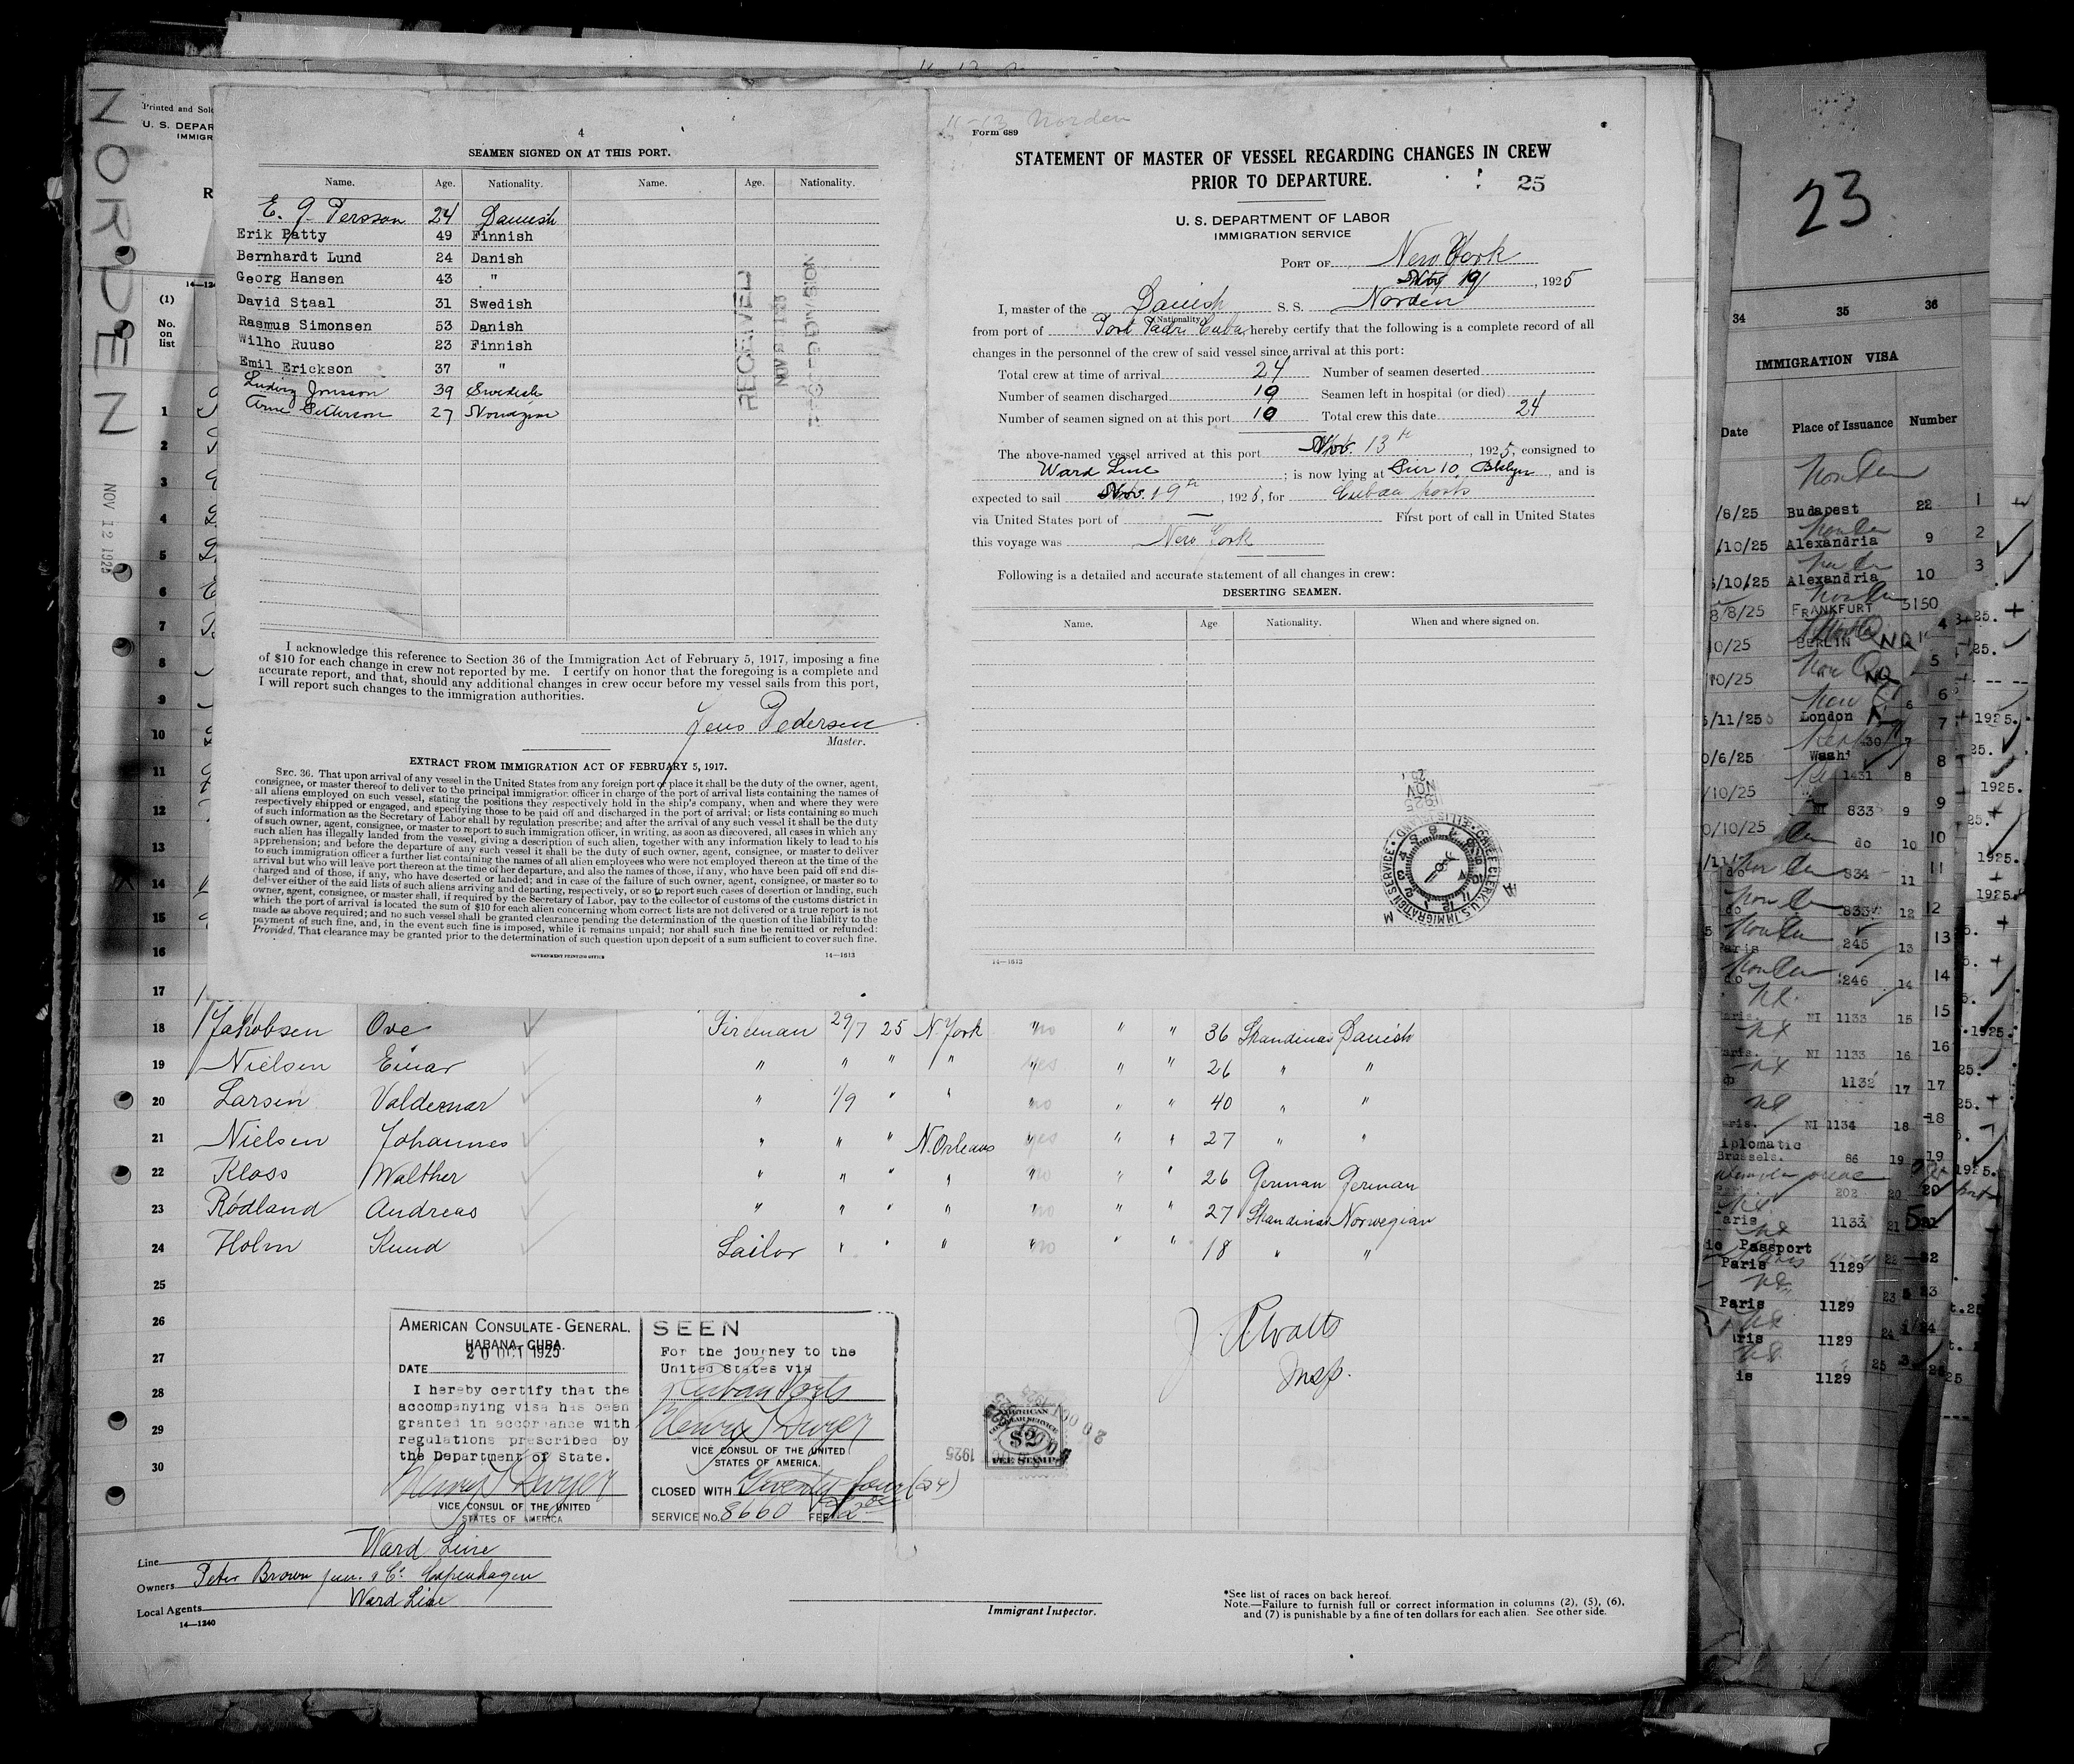 NORDEN
NOV 12 1925
Printed and Sold
U. S. DEPAR
IMMIGR
R
(1)
No.
on
list
4
SEAMEN SIGNED ON AT THIS PORT.
Name. Age. Nationality. Name. Age. Nationality.
E. J. Persson 24 Danish
Erik Patty 49 Finnish
Bernhardt Lund 24 Danish
Georg Hansen 43 "
David Staal 31 Swedish
Rasmus Simonsen 53 Danish
Wilho Ruuso 23 Finnish
Emil Erickson 37 "
Ludvig Jonsson 39 Swedish
Arne Petterson 27 Norwegian
RECEIVED
I acknowledge this reference to Section 36 of the Immigration Act of February 5, 1917, imposing a fine
of $10 for each change in crew not reported by me. I certify on honor that the foregoing is a complete and
accurate report, and that, should any additional changes in crew occur before my vessel sails from this port,
I will report such changes to the immigration authorities.
Jens Pedersen
Master.
EXTRACT FROM IMMIGRATION ACT OF FEBRUARY 5, 1917.
SEC. 36. That upon arrival of any vessel in the United States from any foreign port or place it shall be the duty of the owner, agent,
consignee, or master thereof to deliver to the principal immigration officer in charge of the port of arrival lists containing the names of
all aliens employed on such vessel, stating the positions they respectively hold in the ship's company, when and where they were
respectively shipped or engaged, and specifying those to be paid off and discharged in the port of arrival; or lists containing so much
of such information as the Secretary of Labor shall by regulation prescribe; and after the arrival of any such vessel it shall be the duty
of such owner, agent, consignee, or master to report to such immigration officer, in writing, as soon as discovered, all cases in which any
such alien has illegally landed from the vessel, giving a description of such alien, together with any information likely to lead to his
apprehension; and before the departure of any such vessel it shall be the duty of such owner, agent, consignee, or master to deliver
to such immigration officer a further list containing the names of all alien employees who were not employed thereon at the time of the
arrival but who will leave port thereon at the time of her departure, and also the names of those, if any, who have been paid off and dis-
charged and of those, if any, who have deserted or landed; and in case of the failure of such owner, agent, consignee, or master so to
deliver either of the said lists of such aliens arriving and departing, respectively, or so to report such cases of desertion or landing, such
owner, agent, consignee, or master shall, if required by the Secretary of Labor, pay to the collector of customs of the customs district in
which the port of arrival is located the sum of $10 for each alien concerning whom correct lists are not delivered or a true report is not
made as above required; and no such vessel shall be granted clearance pending the determination of the question of the liability to the
payment of such fine, and, in the event such fine is imposed, while it remains unpaid; nor shall such fine be remitted or refunded:
Provided, That clearance may be granted prior to the determination of such question upon deposit of a sum sufficient to cover such fine.
GOVERNMENT PRINTING OFFICE 14—1613
11-13 Norden
Form 689
STATEMENT OF MASTER OF VESSEL REGARDING CHANGES IN CREW
PRIOR TO DEPARTURE.
25
U. S. DEPARTMENT OF LABOR
IMMIGRATION SERVICE
PORT OF New York
Nov 19, 1925
I, master of the Danish S. S. Norden
(Nationality)
from port of Port Padre Cuba hereby certify that the following is a complete record of all
changes in the personnel of the crew of said vessel since arrival at this port:
Total crew at time of arrival 24 Number of seamen deserted
Number of seamen discharged 10 Seamen left in hospital (or died)
Number of seamen signed on at this port 10 Total crew this date 24
The above-named vessel arrived at this port Nov. 13th, 1925, consigned to
Ward Line; is now lying at Pier 10 Bklyn, and is
expected to sail Nov. 19th, 1925, for Cuban Ports
via United States port of — First port of call in United States
this voyage was New York
Following is a detailed and accurate statement of all changes in crew:
DESERTING SEAMEN.
Name. Age Nationality. When and where signed on.
NOV
1925
CHIEF CLERK, U.S. IMMIGRATION SERVICE • ELLIS ISLAND
14—1613
1
2
3
4
5
6
7
8
9
10
11
12
13
14
15
16
17
18 Jakobsen Ove Fireman 29/7 25 N. York " no " " 36 Skandinav Danish
19 Nielsen Einar " " " " " yes " " 26 " "
20 Larsen Valdemar " 1/9 " " " no " " 40 " "
21 Nielsen Johannes " " " N. Orleans " yes " " 27 " "
22 Kloss Walther " " " " " no " " 26 German German
23 Rødland Andreas " " " " " no " " 27 Skandinav Norwegian
24 Holm Knud Sailor " " " " no " " 18 " "
25
26
27
28
29
30
AMERICAN CONSULATE-GENERAL.
HABANA, CUBA.
DATE 20 OCT 1925
I hereby certify that the
accompanying visa has been
granted in accordance with
regulations prescribed by
the Department of State.
Henry T. Dwyer
VICE CONSUL OF THE UNITED
STATES OF AMERICA
SEEN
For the journey to the
United States via
Cuban Ports
Henry T. Dwyer
VICE CONSUL OF THE UNITED
STATES OF AMERICA.
CLOSED WITH Twenty four (24)
SERVICE No. 8660 FEE
Insp.
AMERICAN
CONSULAR SERVICE
$2
FEE STAMP
1925
Line Ward Line
Owners Peter Brown jun. & Co. Copenhagen
Local Agents Ward Line
14—1240
Immigrant Inspector.
*See list of races on back hereof.
Note.—Failure to furnish full or correct information in columns (2), (5), (6),
and (7) is punishable by a fine of ten dollars for each alien. See other side.
23
34 35 36
IMMIGRATION VISA
Date Place of Issuance Number
/8/25 Budapest 22 1
/10/25 Alexandria 9 2
/10/25 Alexandria 10 3
8/8/25 FRANKFURT 5150 4
0/25 BERLIN NQ 5
/10/25 NQ 6
/11/25 London 7
0/6/25 Wash 430 8
/10/25 1431 9
NI 833 10
0/10/25 do 11
do 834
do 833 12
Paris 245 13
do 246 14
Paris. NI 1133 15
Paris. NI 1133 16
1132 17
aris. NI 1134 18
iplomatic
Brussels. 86 19
202 20
aris 1133 21
ic Passport
Paris 1129 22
Paris 1129 23
ris 1129 24
is 1129 25